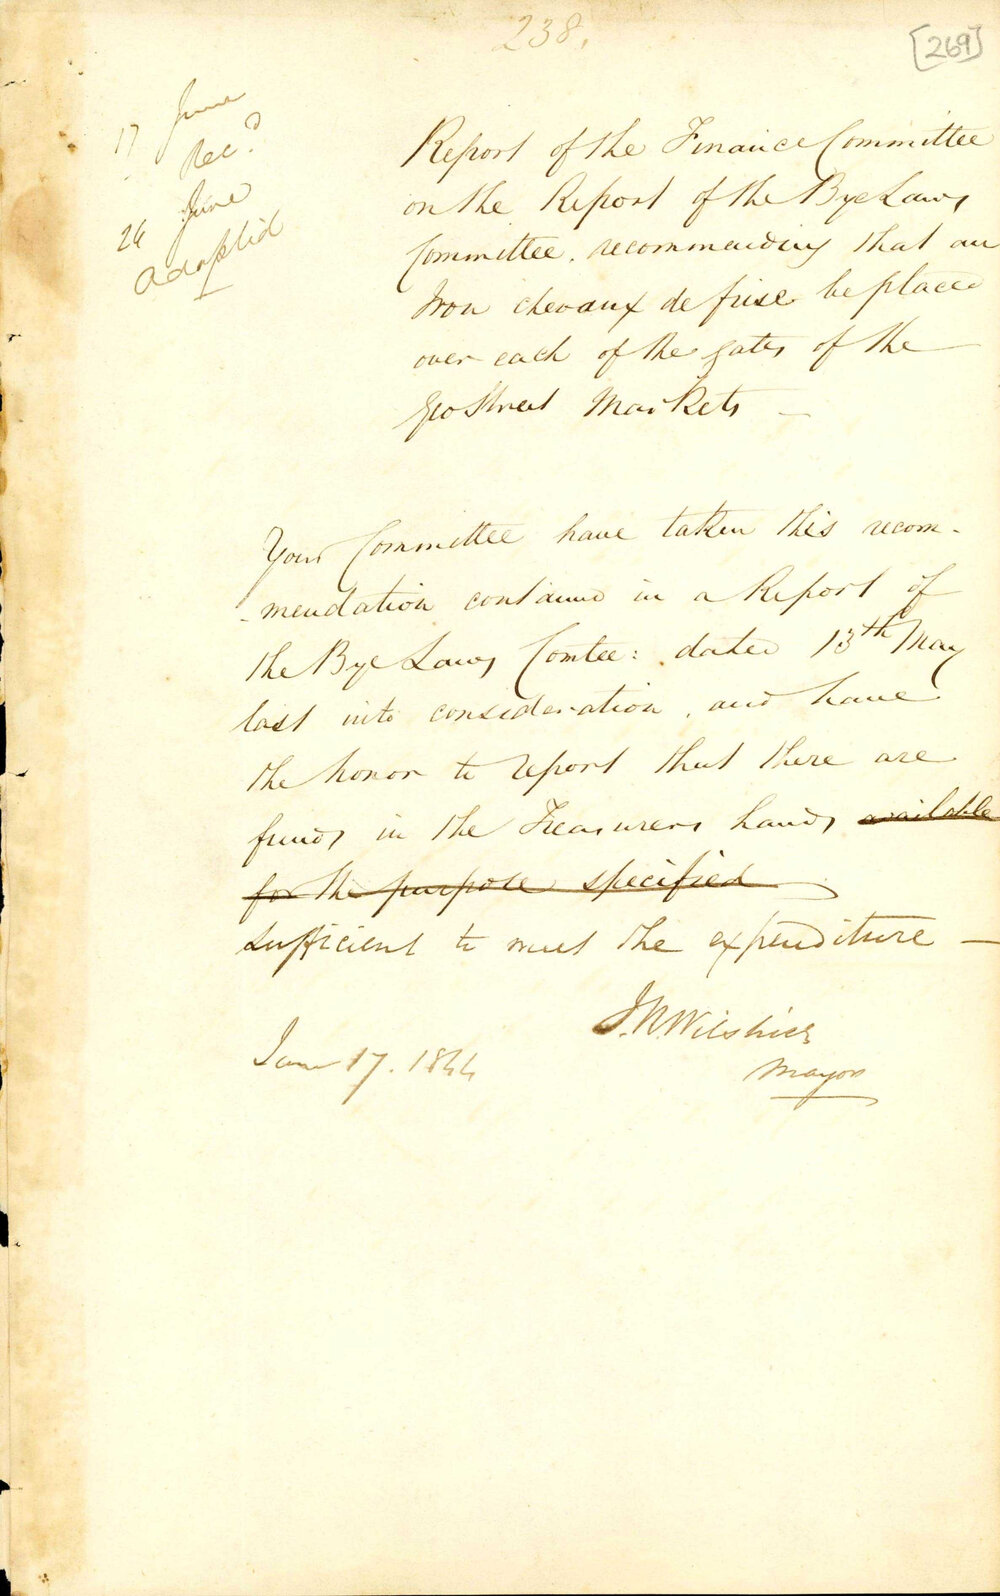 238.
[269]
17 June
Rec.d
26 June
Adopted
Report of the Finance Committee
on the Report of the Bye Laws
Committee. recommending that an
Iron chevaux de frise be placed
over each of the gates of the
Geo Street Markets —
Your Committee have taken this recom-
-mendation contained in a Report of
the Bye Laws Comtee: dated 13th May
last into consideration, and have
the honor to report that there are
funds in the Treasurers hands available
for the purpose specified
sufficient to meet the expenditure —
J.R. Wilshire
Mayor
June 17. 1844